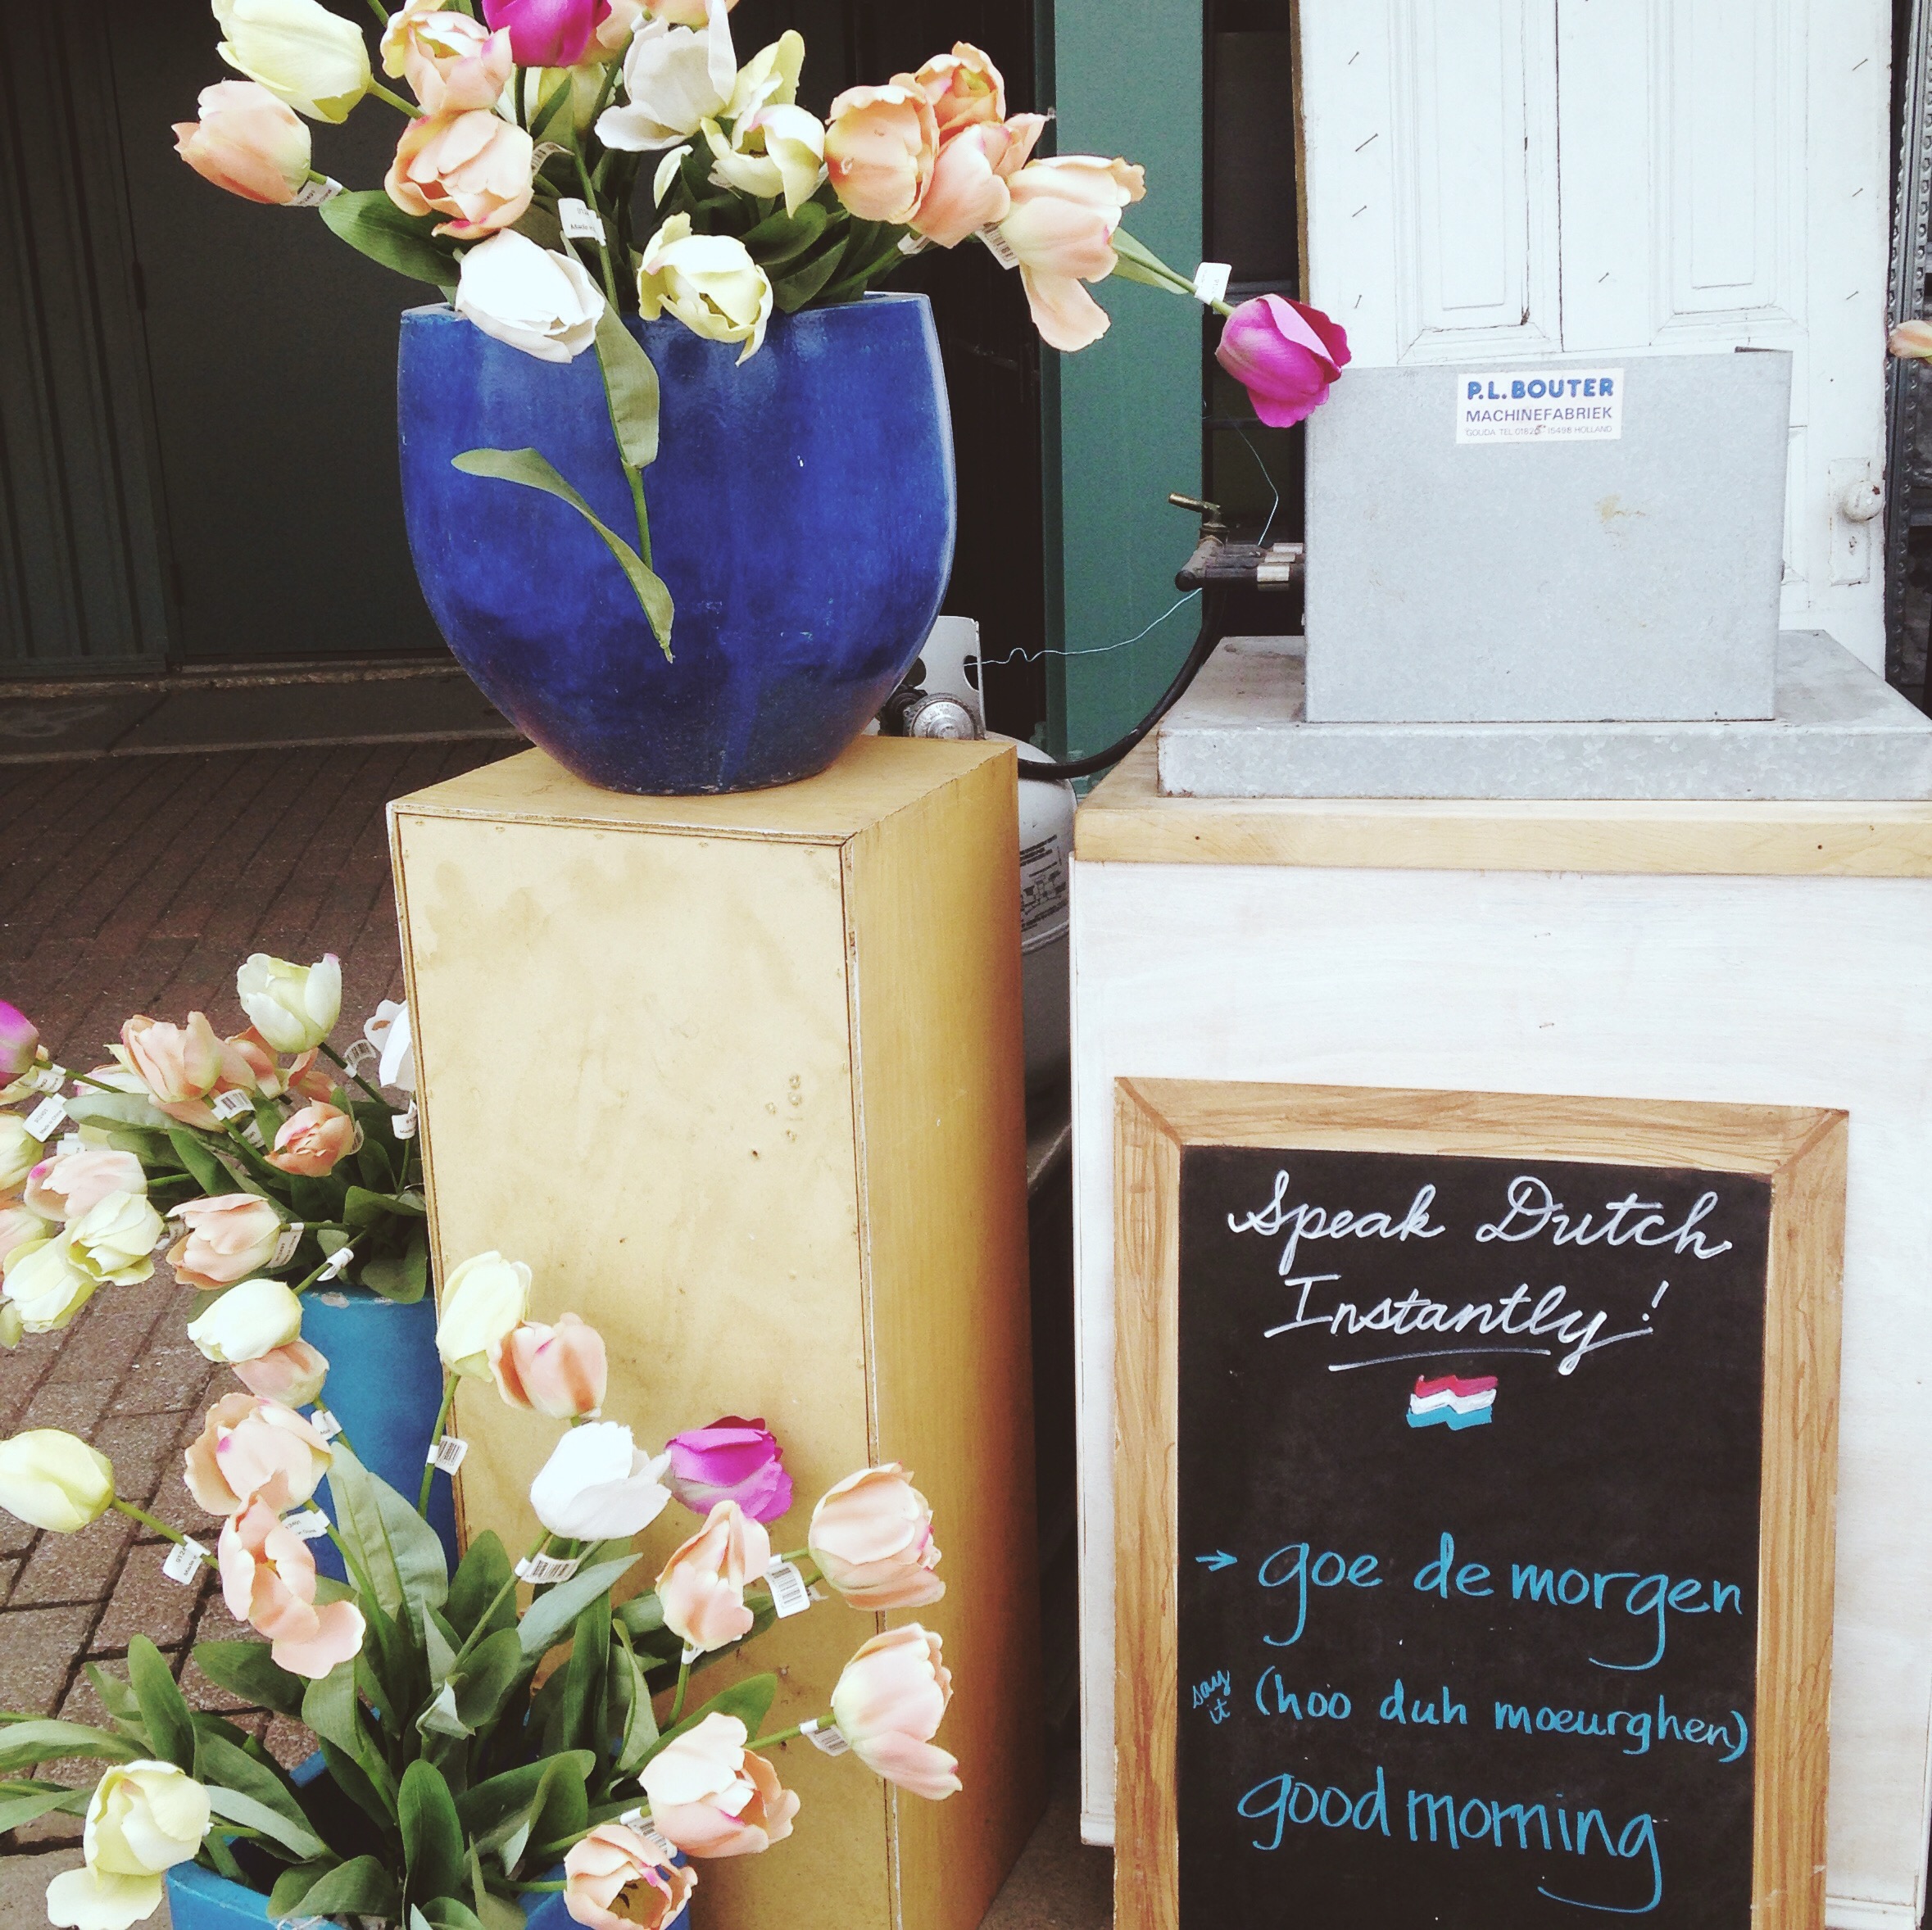 P.L.BOUTER
MACHINEFABRIEK
GOUDA TEL 01820-15498 HOLLAND
Speak Dutch
Instantly!
→ goe de morgen
say it (hoo duh mœurghen)
good morning